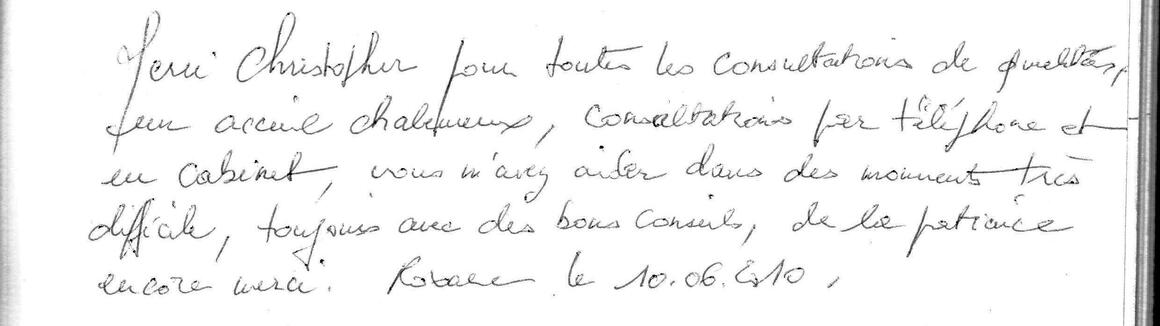 Merci Christopher pour toutes les consultations de qualités,
un accueil chaleureux, consultations par téléphone et
en cabinet, vous m'avez aider dans des moments très
difficile, toujours avec des bons conseils, de la patience
encore merci. le 10.06.2010,